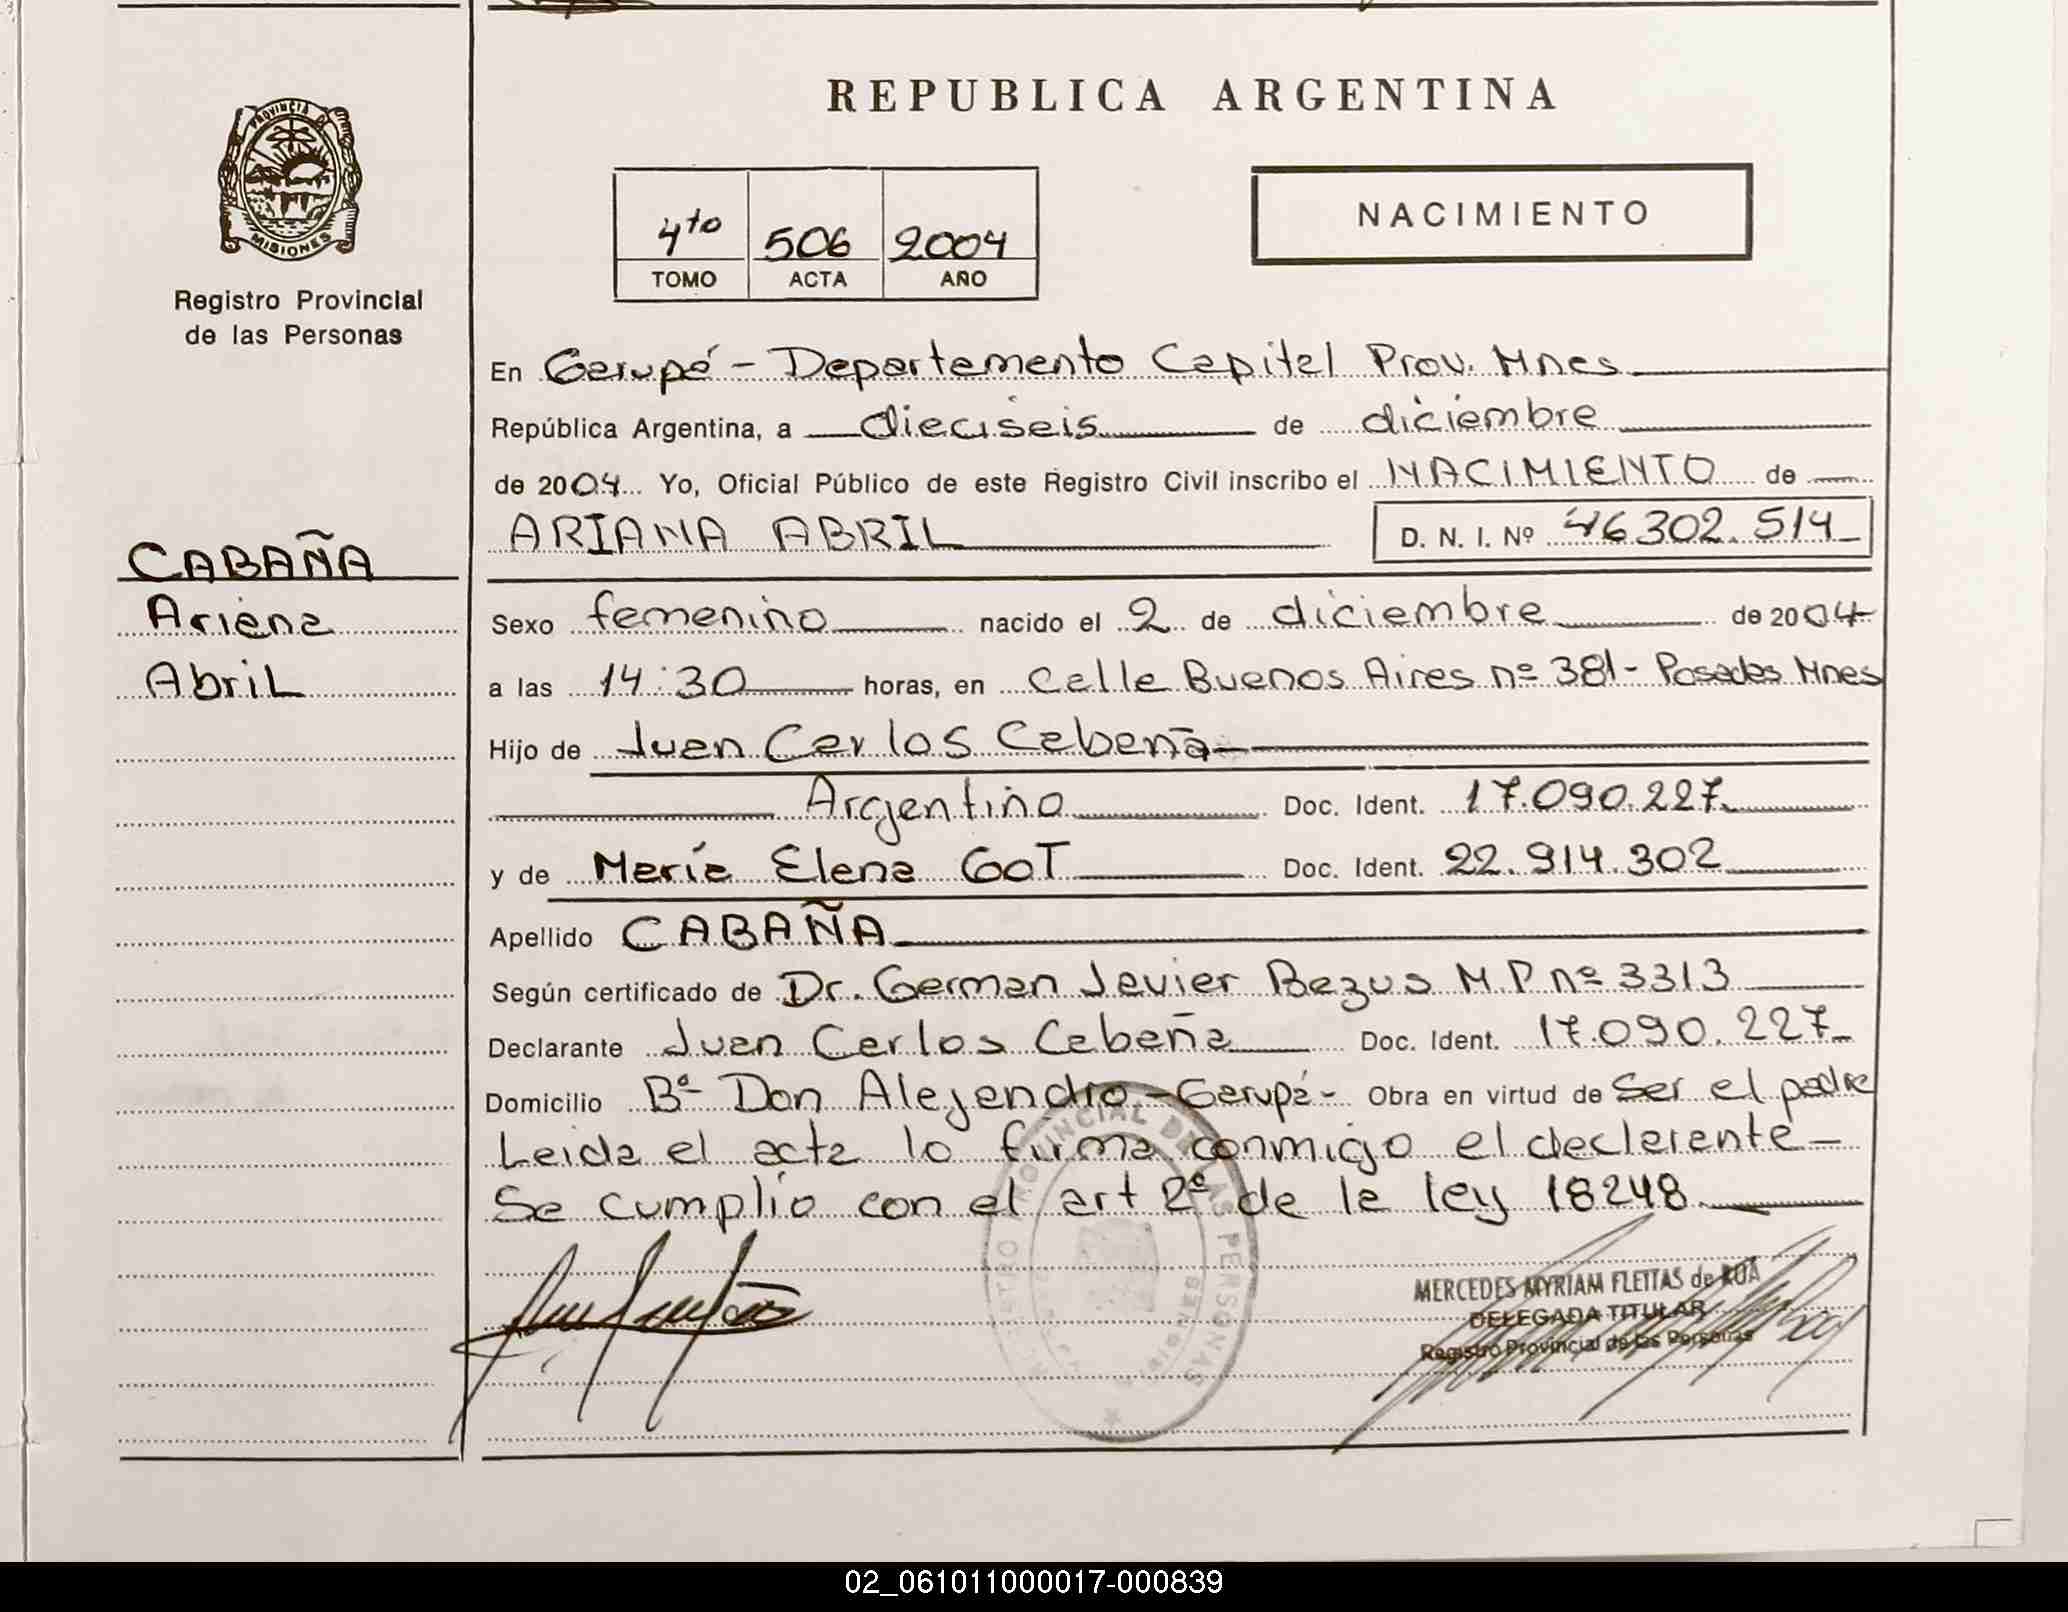 REPUBLICA ARGENTINA
PROVINCIA DE
MISIONES
Registro Provincial
de las Personas
4to 506 2004
TOMO ACTA AÑO
NACIMIENTO
En Garupá - Departamento Capital Prov. Mnes
República Argentina, a dieciseis de diciembre
de 2004 Yo, Oficial Público de este Registro Civil inscribo el NACIMIENTO de
ARIANA ABRIL D. N. I. Nº 46.302.514
CABAÑA
Ariana
Abril
Sexo femenino nacido el 2 de diciembre de 2004
a las 14:30 horas, en Calle Buenos Aires nº 381 - Posadas Mnes
Hijo de Juan Carlos Cabaña
Argentino Doc. Ident. 17.090.227
y de María Elena GOT Doc. Ident. 22.914.302
Apellido CABAÑA
Según certificado de Dr. German Javier Bezus M.P nº 3313
Declarante Juan Carlos Cabaña Doc. Ident. 17.090.227
Domicilio Bº Don Alejandro - Garupá - Obra en virtud de ser el padre
Leida el acta lo firma conmigo el declarante -
Se cumplio con el art 2º de la ley 18248
REGISTRO PROVINCIAL DE LAS PERSONAS
MERCEDES MYRIAM FLEITAS de RUA
DELEGADA TITULAR
Registro Provincial de las Personas
02_061011000017-000839